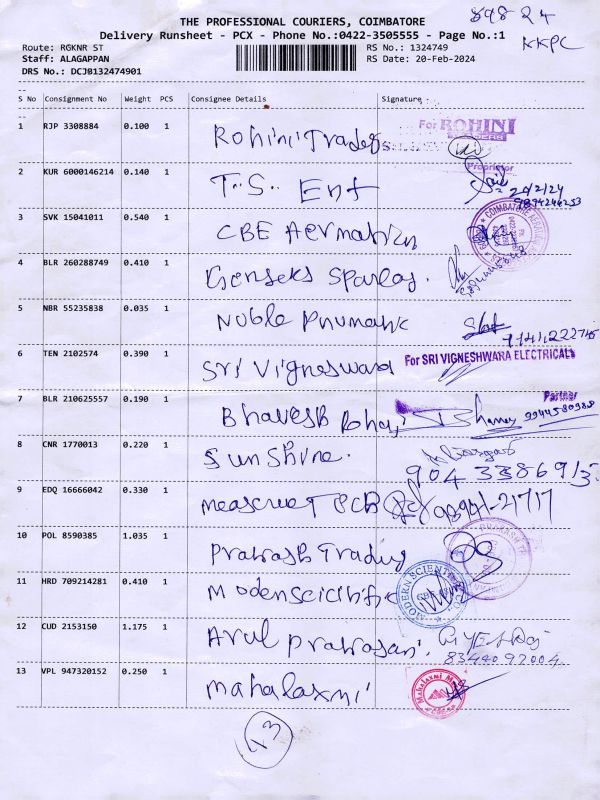 THE PROFESSIONAL COURIERS, COIMBATORE
898 24
Delivery Runsheet - PCX - Phone No.:0422-3505555 - Page No.:1
KKPC
Route: RGKNR ST
RS No.: 1324749
Staff: ALAGAPPAN
RS Date: 20-Feb-2024
DRS No.: DCJ0132474901
S No Consignment No Weight PCS Consignee Details Signature
1 RJP 3308884 0.100 1 Rohini Traders For ROHINI
Proprietor
2 KUR 6000146214 0.140 1 T.S. Ent 20/2/24
9894246253
3 SVK 15041011 0.540 1 CBE
4 BLR 260288749 0.410 1
5 NBR 55235838 0.035 1 Noble Pnumatic
6 TEN 2102574 0.390 1 Sri Vigneswara For SRI VIGNESHWARA ELECTRICALS
Partner
7 BLR 210625557 0.190 1 Bhavesh 9944580988
8 CNR 1770013 0.220 1 Sunshine.
9043386915
9 EDQ 16666042 0.330 1 PCB
10 POL 8590385 1.035 1 Prakash Trading
11 HRD 709214281 0.410 1 MODERN SCIENTIFIC
12 CUD 2153150 1.175 1 Arul
8344092004
13 VPL 947320152 0.250 1 Mahalaxmi Mahalaxmi
13